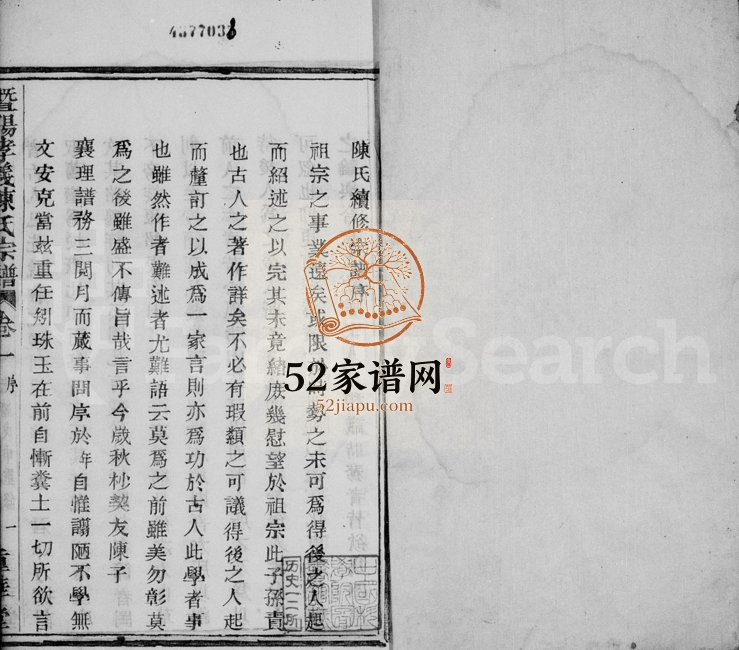 4377038
陳氏續修宗譜序
祖宗之事業遠矣或限於時勢之未可爲得後之人起
而紹述之以完其未竟緒庶幾慰望於祖宗此子孫責
也古人之著作詳矣不必有瑕纇之可議得後之人起
而釐訂之以成爲一家言則亦爲功於古人此學者事
也雖然作者難述者尤難語云莫爲之前雖美勿彰莫
爲之後雖盛不傳旨哉言乎今歲秋杪契友陳子
襄理譜務三閱月而蕆事問序於年自惟譾陋不學無
文安克當玆重任矧珠玉在前自慚糞土一切所欲言
暨陽孝義陳氏宗譜 卷一 序 一
52家谱网
52jiapu.com
FamilySearch
历史一二所